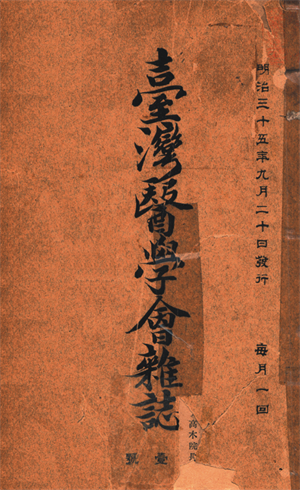 明治三十五年九月二十日發行　每月一回
臺灣醫學會雜誌
高木院長
壹號